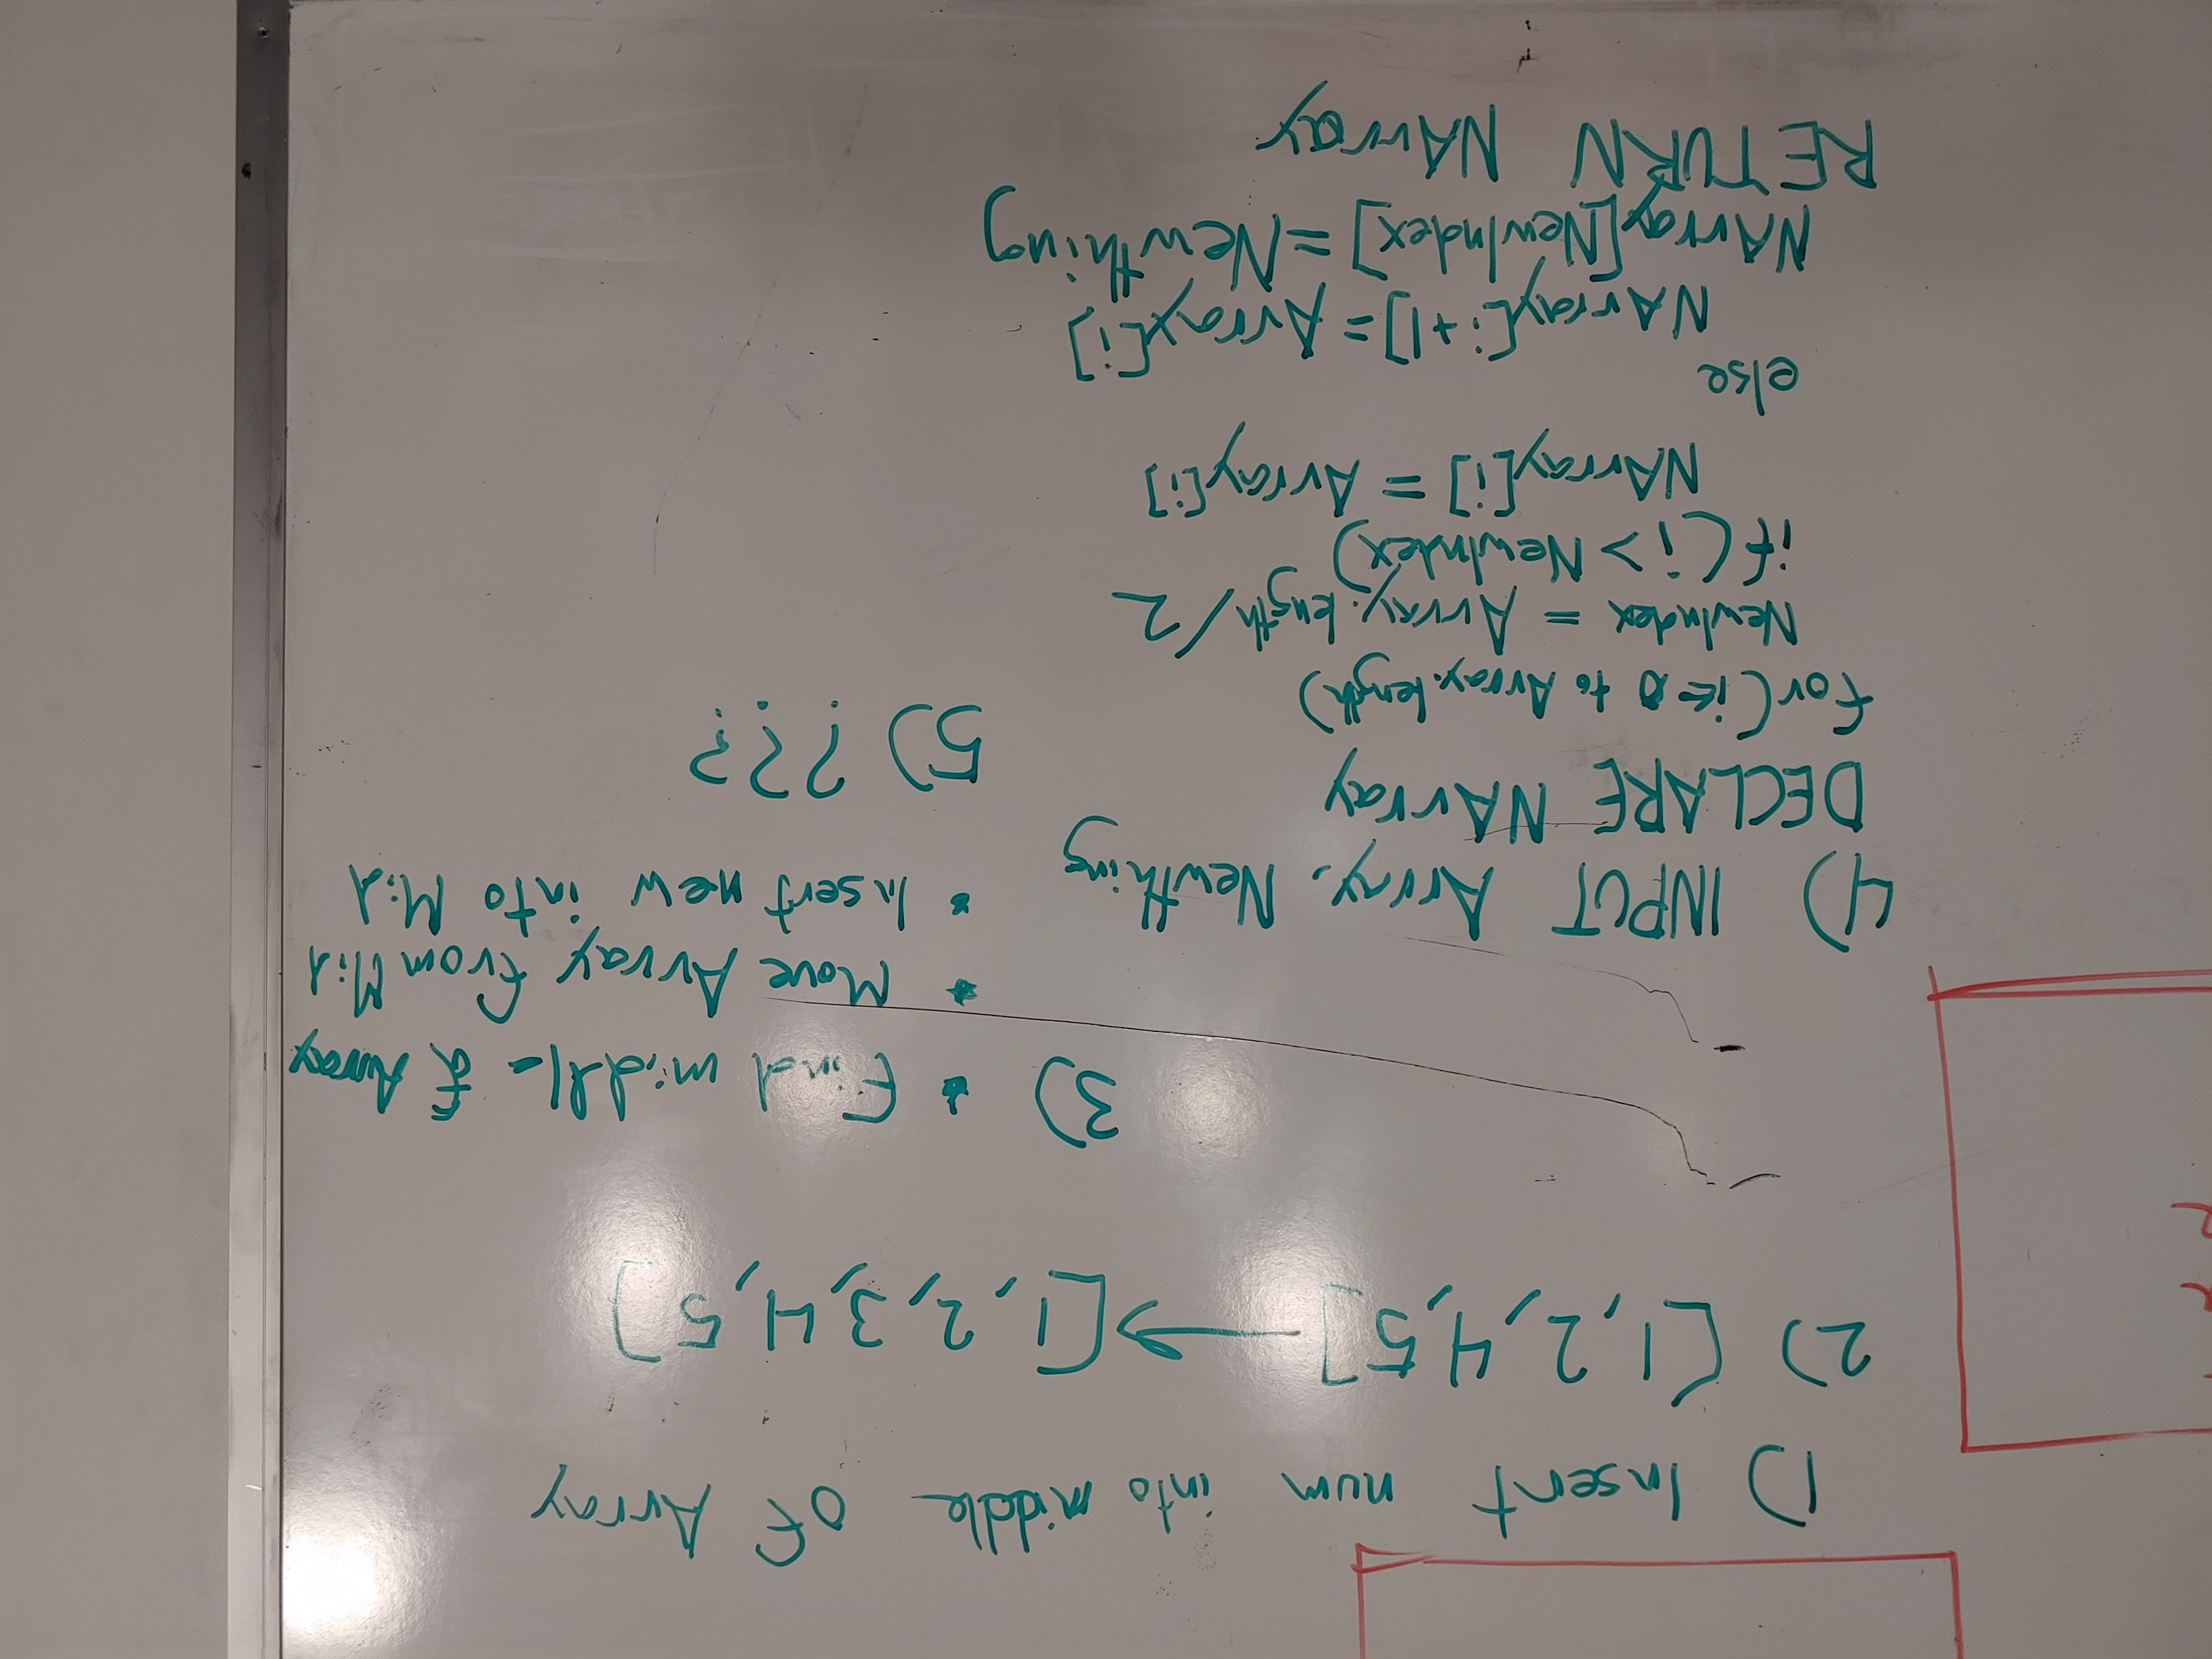 1) Insert num into middle of Array
2) [1,2,4,5] → [1,2,3,4,5]
3) * Find middle of Array
* Move Array from Mid
* Insert new into Mid
4) INPUT Array, Newthing
DECLARE NArray
for(i← 0 to Array.length)
NewIndex = Array.length/2
if(i > NewIndex)
NArray[i] = Array[i]
else
NArray[i+1]=Array[i]
NArray[NewIndex]=Newthing
RETURN NArray
5) ???